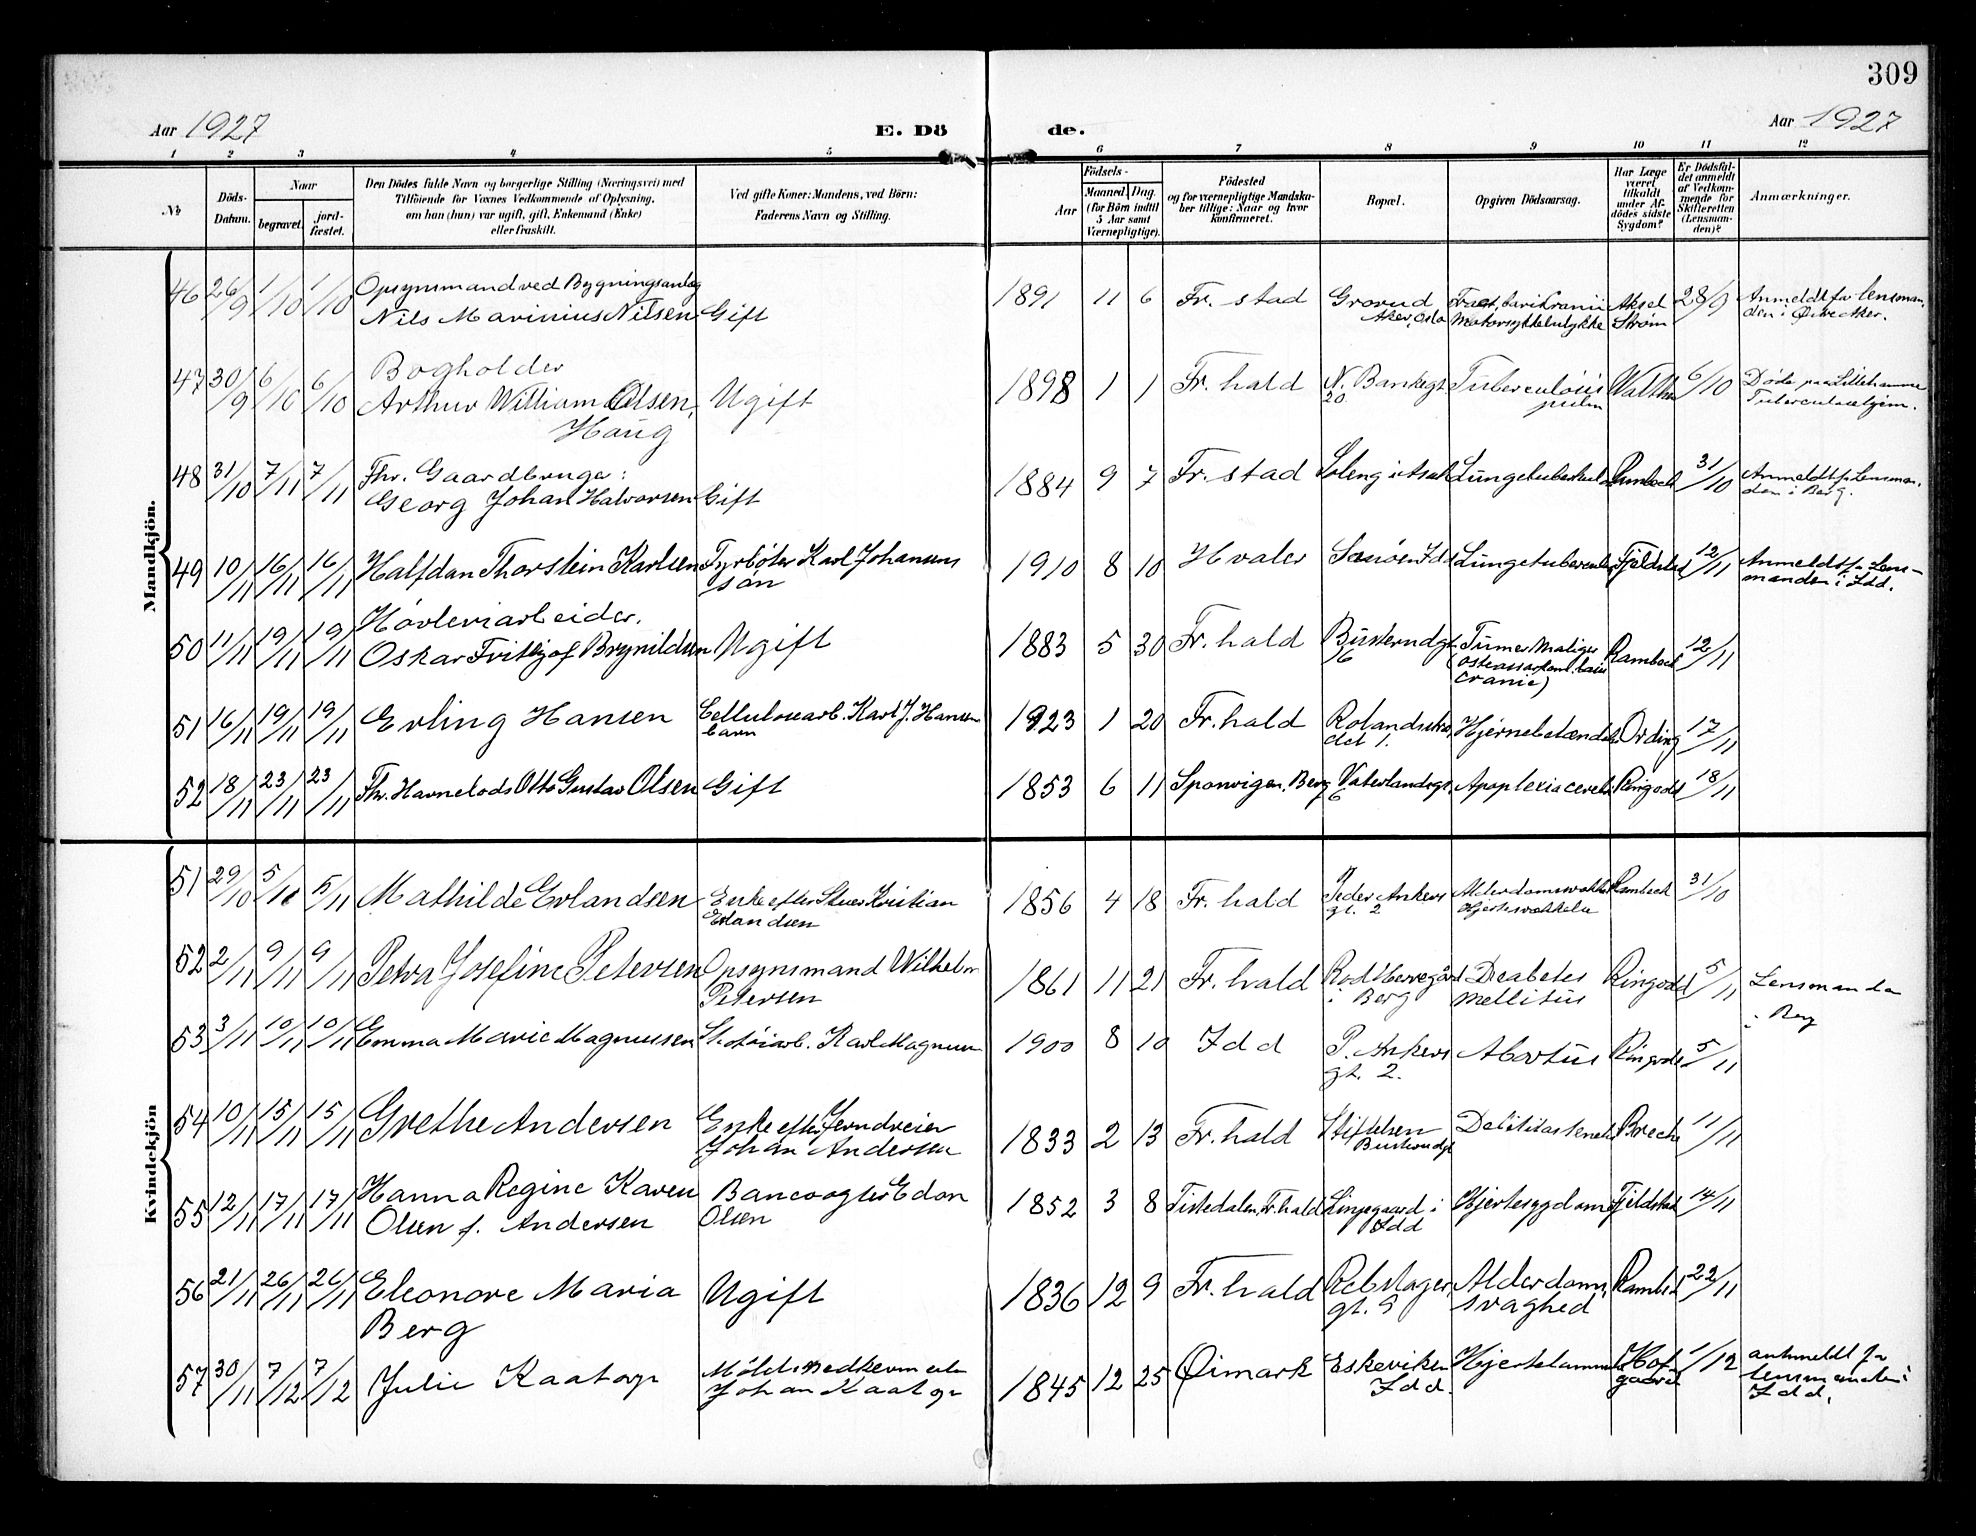 309
Aar 1927
E. Dö
de.
Aar 1927
1 2 3 4 5 6 7 8 9 10 11 12
№
Döds-
Datum.
Naar
begravet.
jord-
fæstet.
Den Dödes fulde Navn og borgerlige Stilling (Næringsvei) med
Tilföiende for Voxnes Vedkommende af Oplysning,
om han (hun) var ugift, gift, Enkemand (Enke)
eller fraskilt.
Ved gifte Koner: Mandens, ved Börn:
Faderens Navn og Stilling.
Födsels-
Aar
Maaned. Dag.
(for Börn indtil
5 Aar samt
Værnepligtige).
Födested
og for værnepligtige Mandska-
ber tillige: Naar og hvor
konfirmeret.
Bopæl.
Opgiven Dödsaarsag.
Har Læge
været
tilkaldt
under Af-
dödes sidste
Sygdom?
Er Dödsfal-
det anmeldt
af Vedkom-
mende for
Skifteretten
(Lensman-
den)?
Anmærkninger.
Mandkjön.
46 26/9 1/10 1/10 Opsynsmand ved Bygningsanlæg
Nils Marinius Nilsen Gift 1891 11 6 Fr. stad Grorud
Aker, Oslo Fract. bari Kranii
Motorsykkelulykke Aksel
Strøm 28/9 Anmeldt for lensman,
den i Østre Aker.
47 30/9 6/10 6/10 Bogholder
Arthur William Olsen,
Haug Ugift 1898 1 1 Fr. hald N. Bankegt.
20 Tuberculosis
pulm 6/10 Døde paa Lillehammer
48 31/10 7/11 7/11 Fhv. Gaardbruger:
Georg Johan Halvorsen Gift 1884 9 7 Fr. stad Rambech 31/10 Anmeldt f. Lensman,
den i Berg.
49 10/11 16/11 16/11 Halfdan Thorstein Karlsen Fyrbøter Karl Johansens
søn 1910 8 10 Hvaler Fjeldstad 12/11 Anmeldt f. Lens-
manden i Idd.
50 11/11 19/11 19/11 Høvleriarbeider.
Oskar Frithjof Brynildsen Ugift 1883 5 30 Fr. hald
16 Rambech 12/11
51 16/11 19/11 19/11 Erling Hansen Cellulosearb. Karl J. Hansen
barn 1923 1 20 Fr. hald
det 1. Ording 17/11
52 18/11 23/11 23/11 Fhv. Havnelods Otto Gustav Olsen Gift 1853 6 11 Sponvigen, Berg Vaterlandsgt.
6 Apoplexia cerebri Ringodd 18/11
Kvindekjön
51 29/10 5/11 5/11 Mathilde Erlandsen Enke efter Kristian
Erlandsen 1856 4 18 Fr. hald Peder Ankers
gt. 2 Rambech 31/10
52 2/11 9/11 9/11 Petra Josefine Petersen Opsynsmand Wilhelm
Petersen 1861 11 21 Fr. hald
i Berg Deabetes
Mellitus Ringodd 5/11 Lensmanden
i Berg
53 3/11 10/11 10/11 Emma Marie Magnussen Karl Magnussen 1900 8 10 Idd P. Ankers
gt. 2. Abortus Ringodd 5/11
54 10/11 15/11 15/11 Grethe Andersen Enke efter
Johan Andersen 1833 2 13 Fr. hald Stiftelsen 11/11
55 12/11 17/11 17/11 Hanna Regine Karen
Olsen f. Andersen Banevogter Edon
Olsen 1852 3 8 Tistedalen, Fr. hald
Idd Hjertesygdom Fjeldstad 14/11
56 21/11 26/11 26/11 Eleonore Maria
Berg Ugift 1836 12 9 Fr. hald Rebslager,
gt. 9 Alderdoms,
svaghed Rambech 22/11
57 30/11 7/12 7/12 Julie Kaatorp
Johan Kaatorp 1845 12 25 Øimark Eskeviken
Idd. Hjertelammelse Hof-
gaard 1/12 anmeldt for
lensmanden i
Idd.